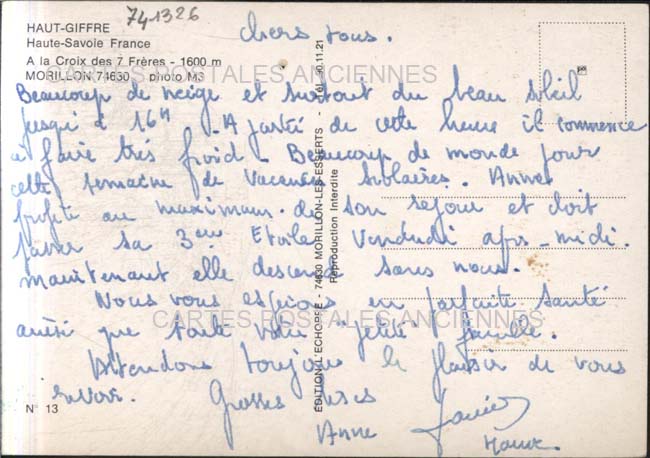 741326
HAUT-GIFFRE
Haute-Savoie France
A la Croix des 7 Frères - 1600 m
MORILLON 74630 photo M3
CARTES POSTALES ANCIENNES
chers vous.
Beaucoup de neige et surtout du beau soleil
jusqu'à 16H - A partir de cette heure il commence
à faire très froid - Beaucoup de monde pour
cette semaine de Vacances Scolaires. Anne
profite au maximum de son séjour et doit
passer sa 3ème Etoile Vendredi après-midi.
maintenant elle descend sans nous.
Nous vous espérons en parfaite santé
ainsi que toute votre "petite" famille.
CARTES POSTALES ANCIENNES
Attendons toujours le plaisir de vous
revoir. Grosses bises
Anne
N° 13
EDITION L'ECHOPPE - 74630 MORILLON-LES-ESSERTS - Tél. 90.11.21
Reproduction Interdite